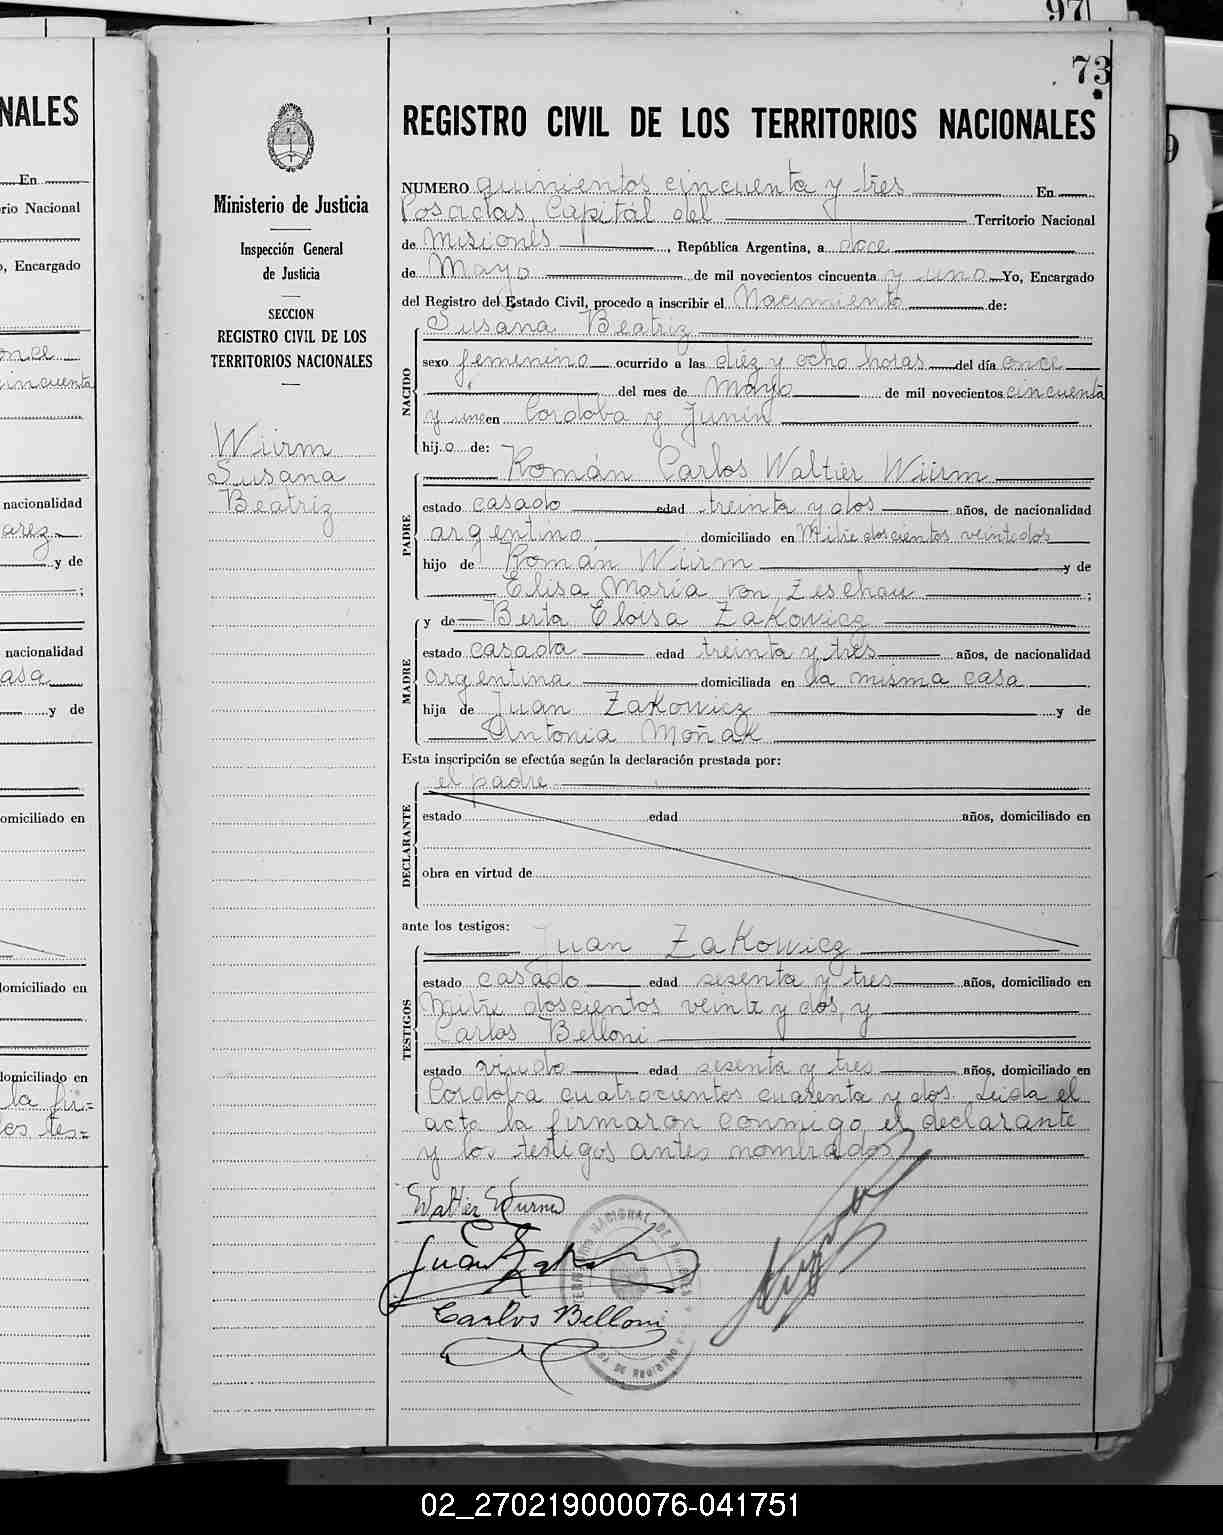 97
73
NALES
En
rio Nacional
o, Encargado
once
cincuenta
nacionalidad
arez
y de
nacionalidad
asa
y de
omiciliado en
domiciliado en
domiciliado en
la fir=
los tes=
Ministerio de Justicia
Inspección General
de Justicia
SECCION
REGISTRO CIVIL DE LOS
TERRITORIOS NACIONALES
Würm
Susana
Beatriz
REGISTRO CIVIL DE LOS TERRITORIOS NACIONALES
NUMERO quinientos cincuenta y tres En
Posadas, Capital del Territorio Nacional
de Misiones, República Argentina, a doce
de Mayo de mil novecientos cincuenta y uno Yo, Encargado
del Registro del Estado Civil, procedo a inscribir el Nacimiento de:
NACIDO
Susana Beatriz
sexo femenino ocurrido a las diez y ocho horas del día once
del mes de Mayo de mil novecientos cincuenta
y uno en Cordoba y Junin
hijo de:
PADRE
Román Carlos Waltier Würm
estado casado edad treinta y dos años, de nacionalidad
argentino domiciliado en Mitre doscientos veintedos
hijo de Román Würm y de
Elisa María von Zeschau ;
MADRE
y de Berta Eloisa Zakowicz
estado casada edad treinta y tres años, de nacionalidad
argentina domiciliada en la misma casa
hija de Juan Zakowicz y de
Antonia Moñak
Esta inscripción se efectúa según la declaración prestada por:
DECLARANTE
el padre
estado edad años, domiciliado en
obra en virtud de
ante los testigos:
TESTIGOS
Juan Zakowicz
estado casado edad sesenta y tres años, domiciliado en
Mitre doscientos veinte y dos, y
Carlos Belloni
estado viudo edad sesenta y tres años, domiciliado en
Cordoba cuatrocientos cuarenta y dos. Leida el
acta la firmaron conmigo el declarante
y los testigos antes nombrados
Waltier Wurm
Juan Zak
Carlos Belloni
02_270219000076-041751